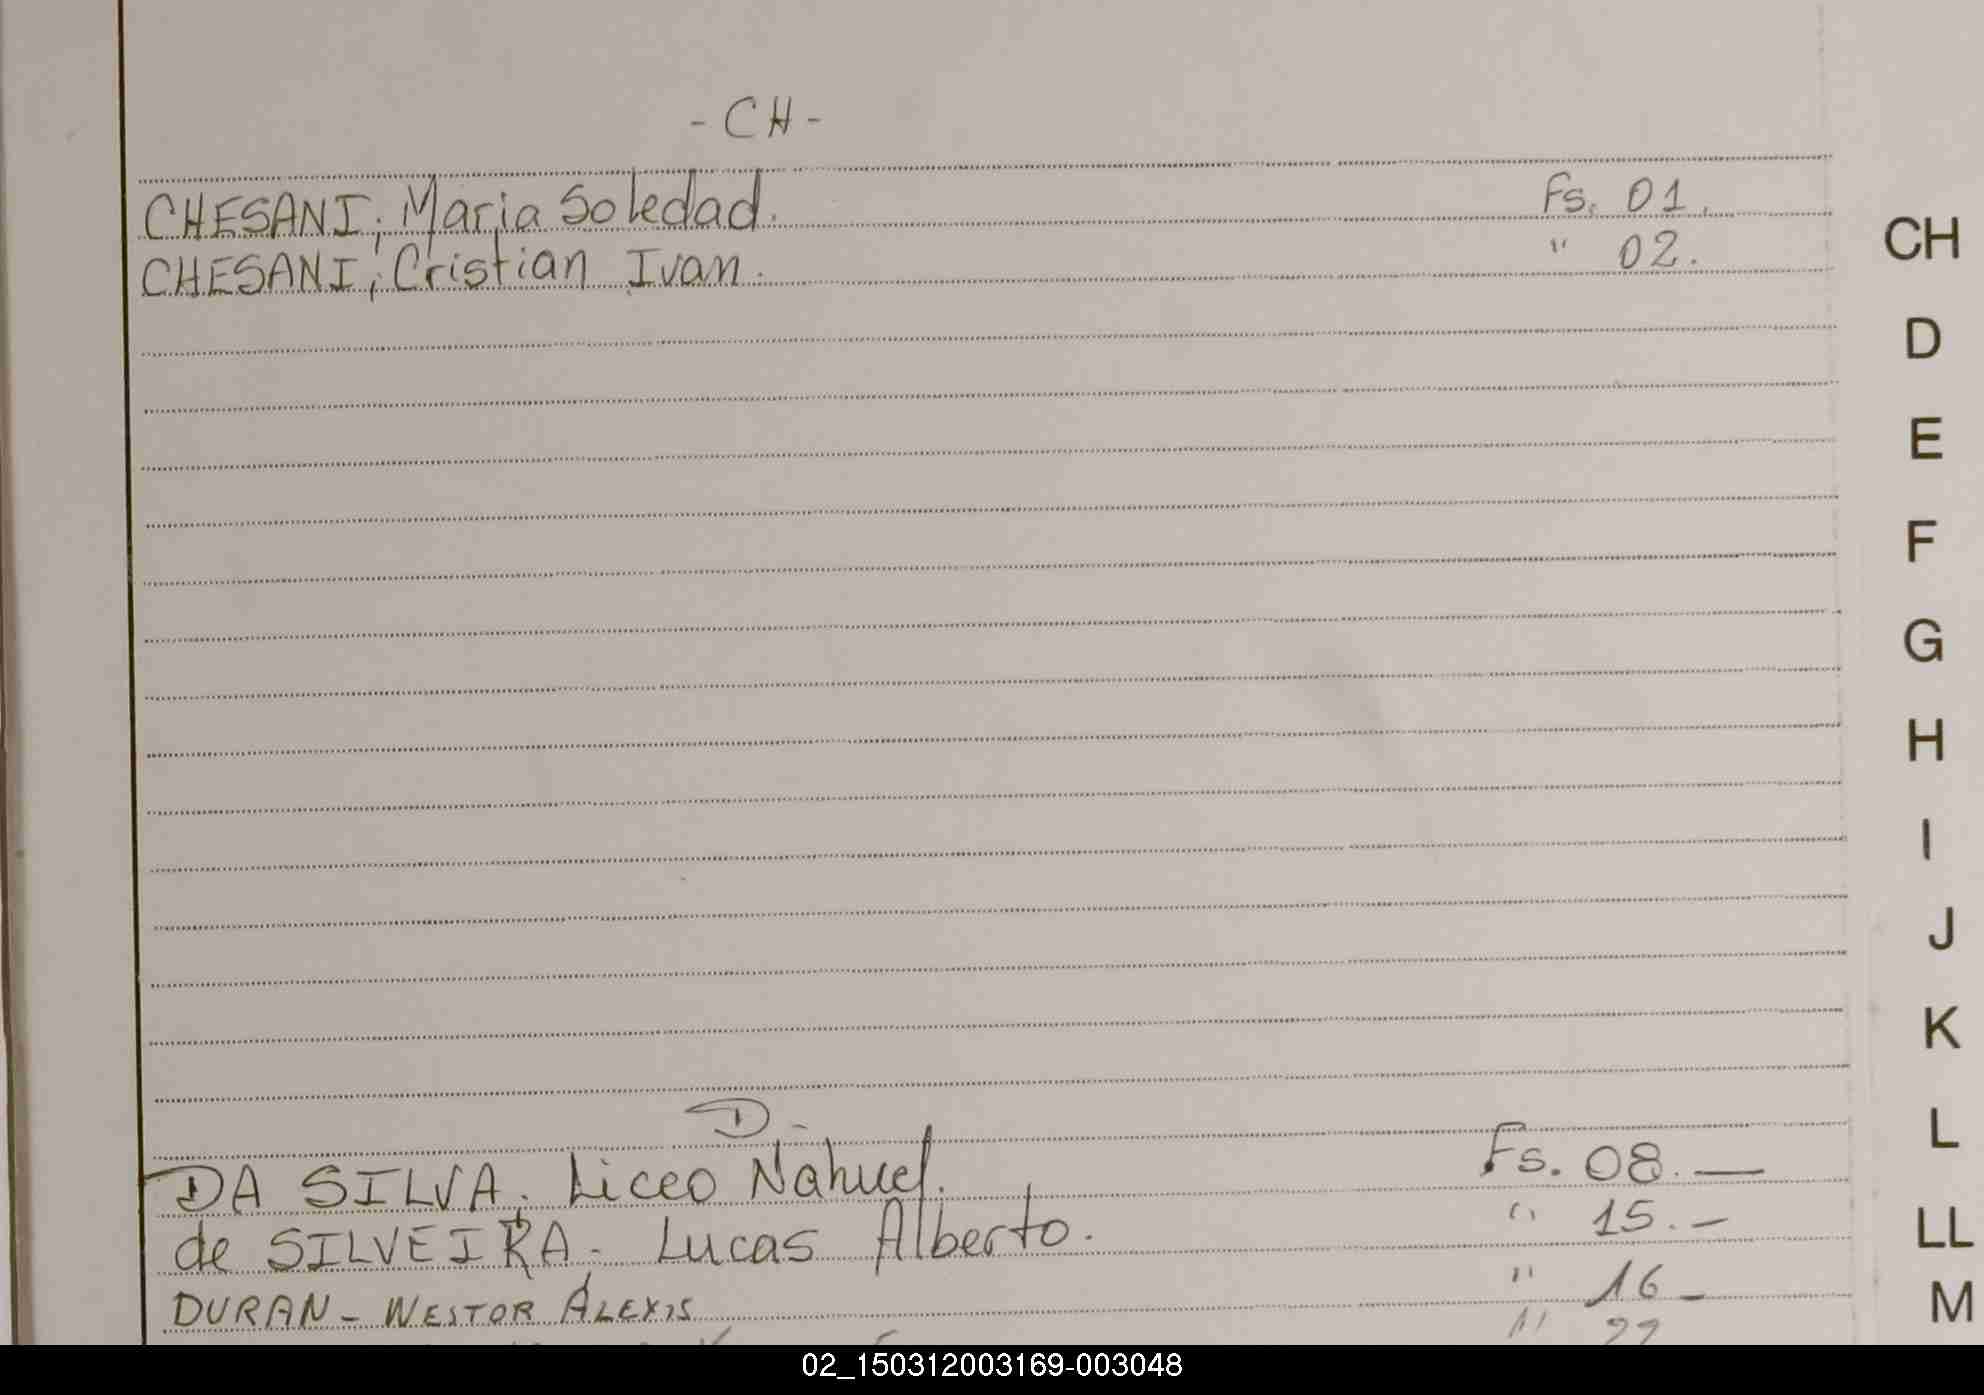 - CH -
CHESANI, Maria Soledad. Fs. 01.
CHESANI, Cristian Ivan. " 02.
D -
DA SILVA. Liceo Nahuel. Fs. 08. —
de SILVEIRA. Lucas Alberto. " 15. —
DURAN - WESTOR ALEXIS " 16 -
" 22
CH
D
E
F
G
H
I
J
K
L
LL
M
02_150312003169-003048